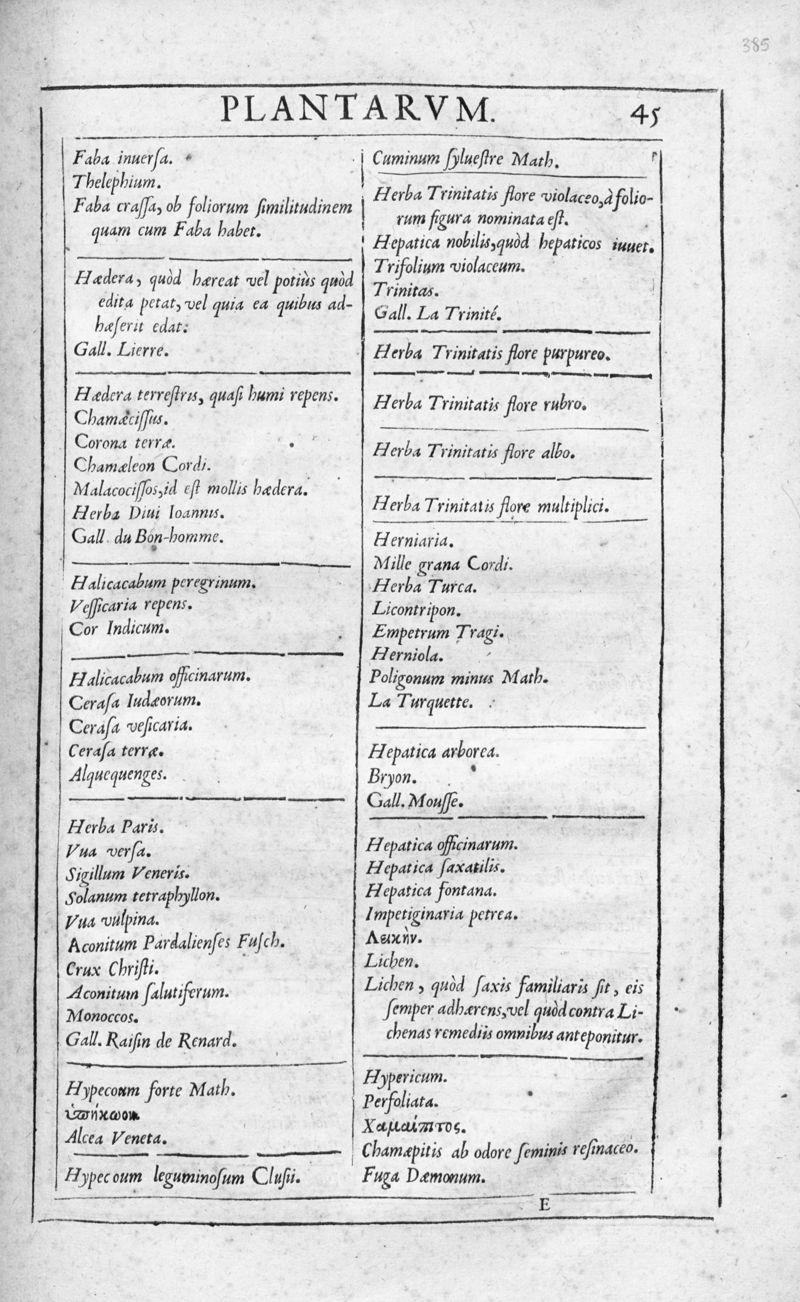 385
PLANTARVM. 45
Faba inuerſa.
Thelephium.
Faba craſſa, ob foliorum ſimilitudinem
quam cum Faba habet.
Hædera, quòd hæreat vel potiùs quòd
edita petat, vel quia ea quibus ad-
hæſerit edat:
Gall. Lierre.
Hædera terreſtris, quaſi humi repens.
Chamæciſſus.
Corona terræ.
Chamæleon Cordi.
Malacociſſos, id eſt mollis hædera.
Herba Diui Ioannis.
Gall. du Bon-homme.
Halicacabum peregrinum.
Veſſicaria repens.
Cor Indicum.
Halicacabum officinarum.
Ceraſa Iudæorum.
Ceraſa veſicaria.
Ceraſa terræ.
Alquequenges.
Herba Paris.
Vua verſa.
Sigillum Veneris.
Solanum tetraphyllon.
Vua vulpina.
Aconitum Pardalienſes Fuſch.
Crux Chriſti.
Aconitum ſalutiferum.
Monoccos.
Gall. Raiſin de Renard.
Hypecoum forte Math.
ὑπήκωον
Alcea Veneta.
Hypecoum leguminoſum Cluſii.
Cuminum ſylueſtre Math.
Herba Trinitatis flore violaceo, à folio-
rum figura nominata eſt.
Hepatica nobilis, quòd hepaticos iuuet.
Trifolium violaceum.
Trinitas.
Gall. La Trinité.
Herba Trinitatis flore purpureo.
Herba Trinitatis flore rubro.
Herba Trinitatis flore albo.
Herba Trinitatis flore multiplici.
Herniaria.
Mille grana Cordi.
Herba Turca.
Licontripon.
Empetrum Tragi.
Herniola.
Poligonum minus Math.
La Turquette.
Hepatica arborea.
Bryon.
Gall. Mouſſe.
Hepatica officinarum.
Hepatica ſaxatilis.
Hepatica fontana.
Impetiginaria petrea.
Λεικὴν.
Lichen.
Lichen, quòd ſaxis familiaris ſit, eis
ſemper adhærens, vel quòd contra Li-
chenas remediis omnibus anteponitur.
Hypericum.
Perfoliata.
Χαμαίπιτος.
Chamæpitis ab odore ſeminis reſinaceo.
Fuga Dæmonum.
E